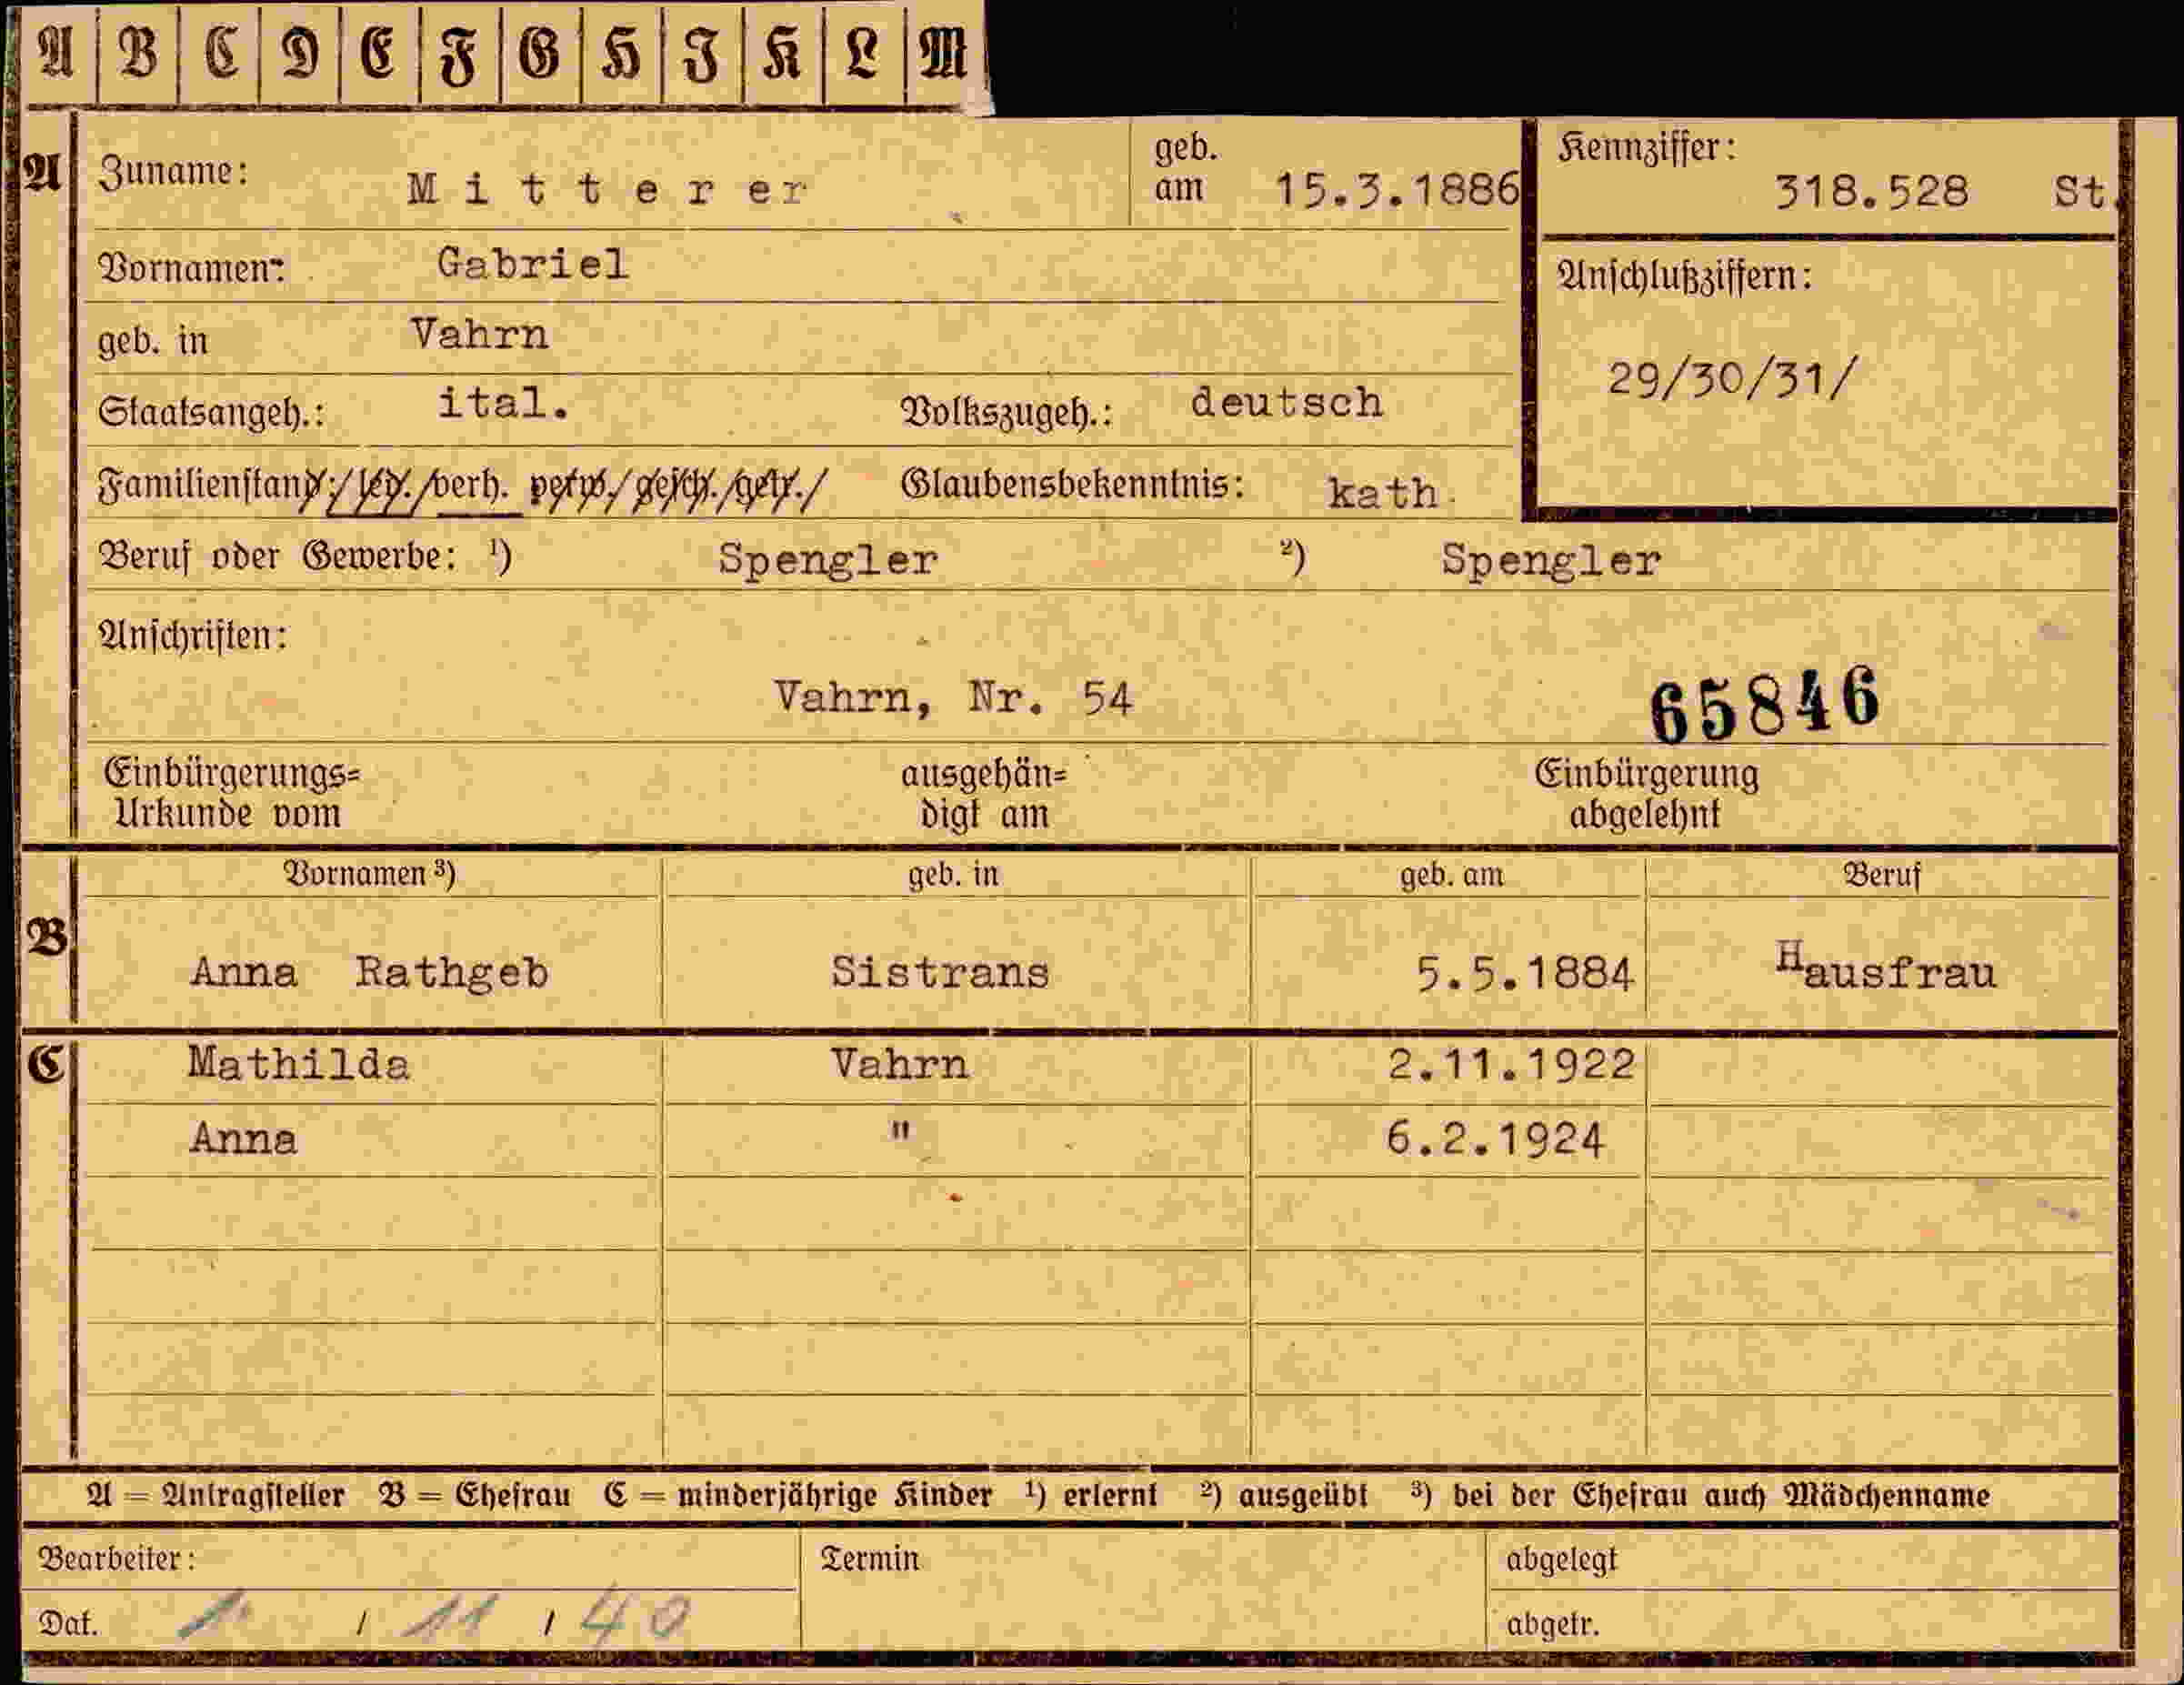 A B C D E F G H I K L M
A Zuname: Mitterer geb. am 15.3.1886 Kennziffer: 318.528 St.
Vornamen: Gabriel
geb. in Vahrn Anschlußziffern:
29/30/31/
Staatsangeh.: ital. Volkszugeh.: deutsch
Familienstand: / led. / verh. verw. / gesch. / getr. / Glaubensbekenntnis: kath.
Beruf oder Gewerbe: ¹) Spengler ²) Spengler
Anschriften:
Vahrn, Nr. 54 65846
Einbürgerungs= ausgehän= Einbürgerung
Urkunde vom digt am abgelehnt
Vornamen ³) geb. in geb. am Beruf
B Anna Rathgeb Sistrans 5.5.1884 Hausfrau
C Mathilda Vahrn 2.11.1922
Anna " 6.2.1924
A = Antragsteller B = Ehefrau C = minderjährige Kinder ¹) erlernt ²) ausgeübt ³) bei der Ehefrau auch Mädchenname
Bearbeiter: Termin abgelegt
Dat. 1. / 11 / 40 abgetr.